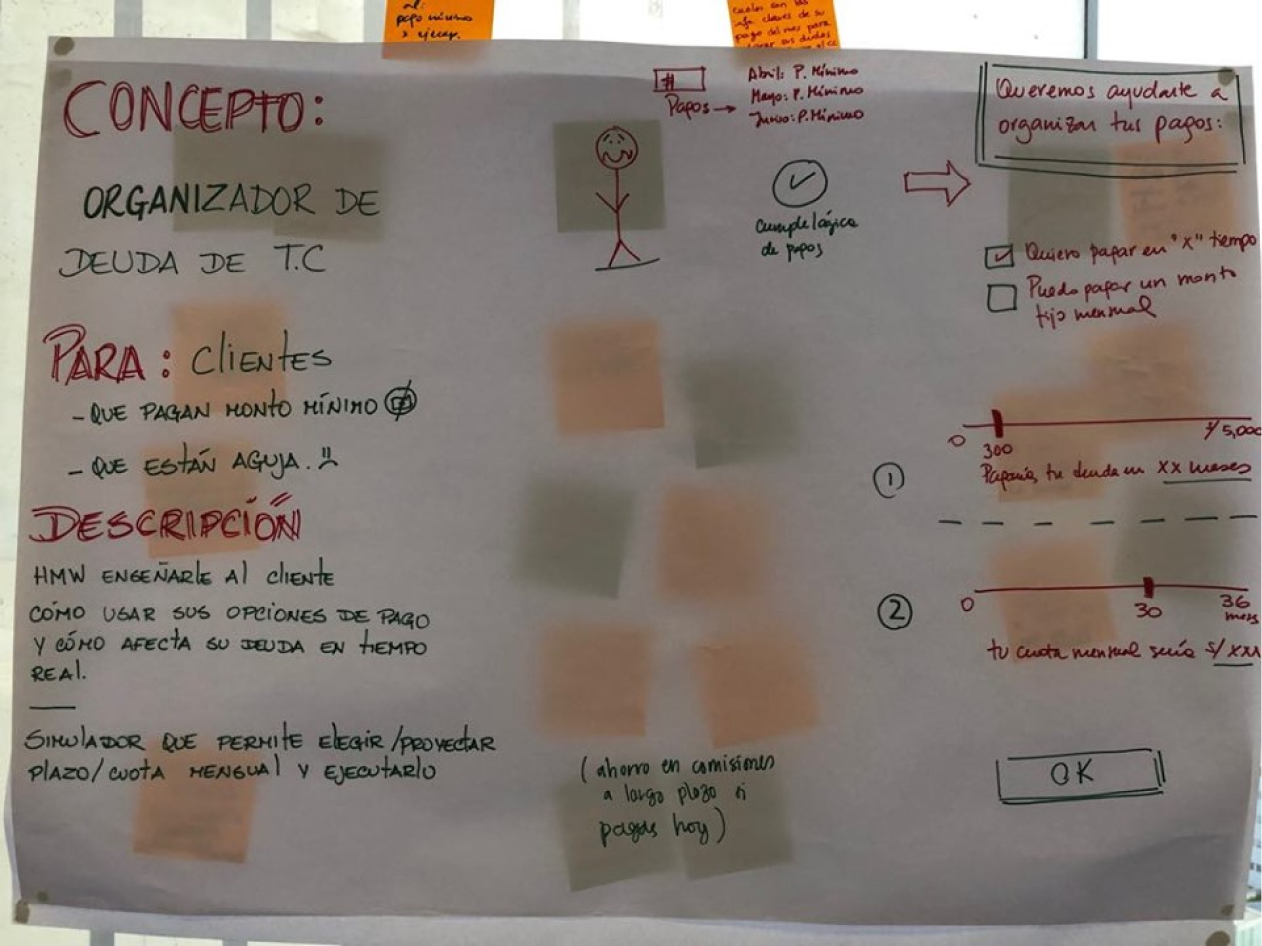 al.
pago mínimo
x ejecap.
cuales son las
claves de su
pago del mes para
sus dudas
CONCEPTO:
ORGANIZADOR DE
DEUDA DE T.C
PARA: CLIENTES
- QUE PAGAN MONTO MÍNIMO
- QUE ESTÁN AGUJA.
DESCRIPCIÓN
HMW ENSEÑARLE AL CLIENTE
CÓMO USAR SUS OPCIONES DE PAGO
Y CÓMO AFECTA SU DEUDA EN TIEMPO
REAL.
SIMULADOR QUE PERMITE ELEGIR/PROYECTAR
PLAZO/CUOTA MENSUAL Y EJECUTARLO
#
Pagos →
Abril: P. Mínimo
Mayo: P. Mínimo
Junio: P. Mínimo
Cumple lógica
de pagos
(ahorro en comisiones
a largo plazo si
pagas hoy)
Queremos ayudarte a
organizar tus pagos:
Quiero pagar en "X" tiempo
Puedo pagar un monto
fijo mensual
1
0
300
S/ 5,000
Pagarías tu deuda en XX meses
2
0
30
36
meses
tu cuota mensual sería S/ XXX
OK